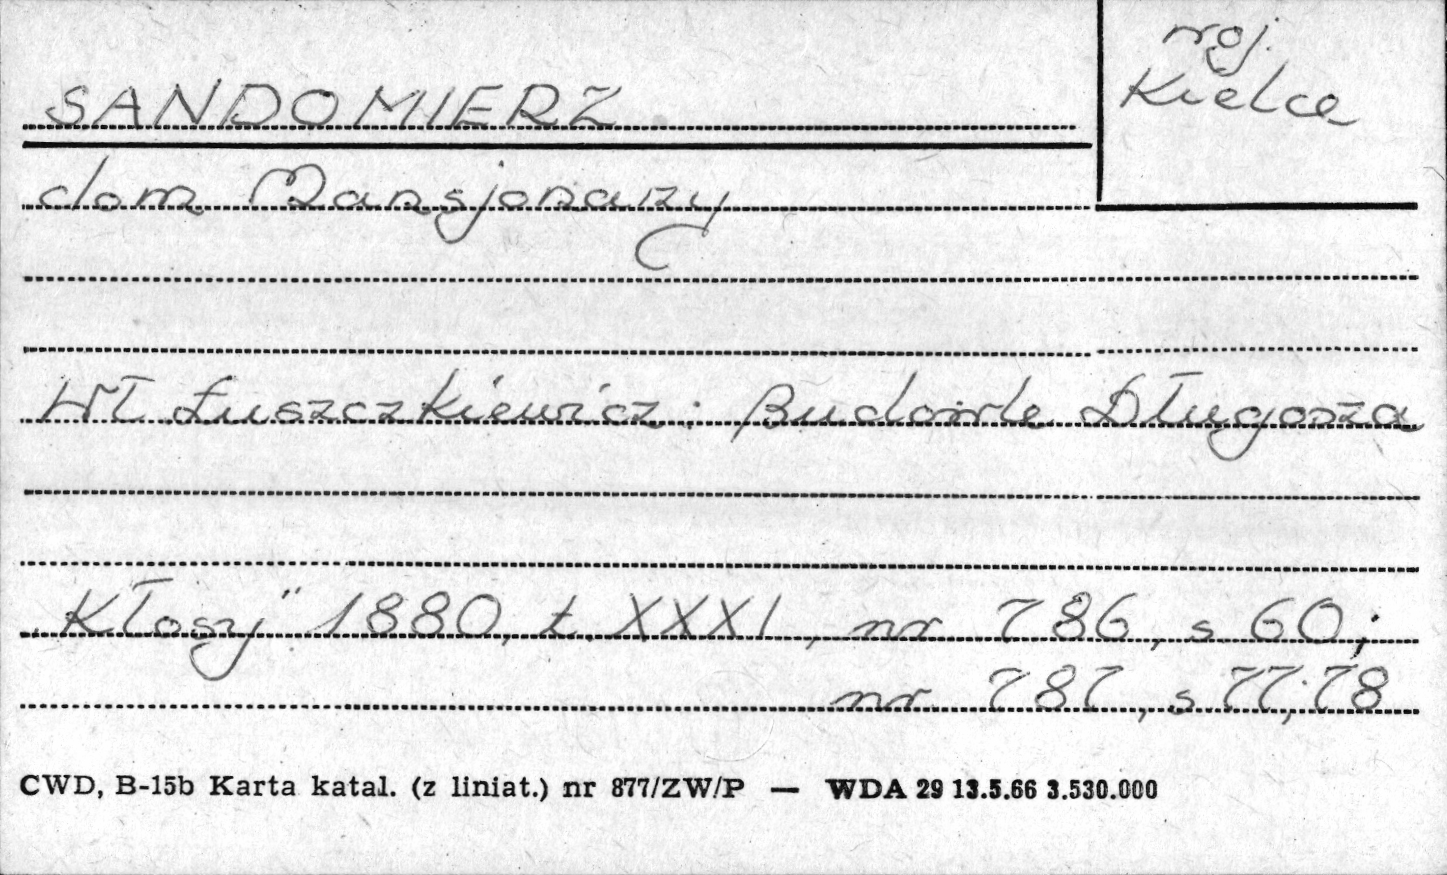 woj.
Kielce
SANDOMIERZ
dom Mansjonarzy
Wł Łuszczkiewicz: Budowle Długosza
„Kłosy" 1880, t. XXXI, nr 786, s 60;
nr 787, s 77; 78
CWD, B-15b Karta katal. (z liniat.) nr 877/ZW/P — WDA 29 13.5.66 3.530.000